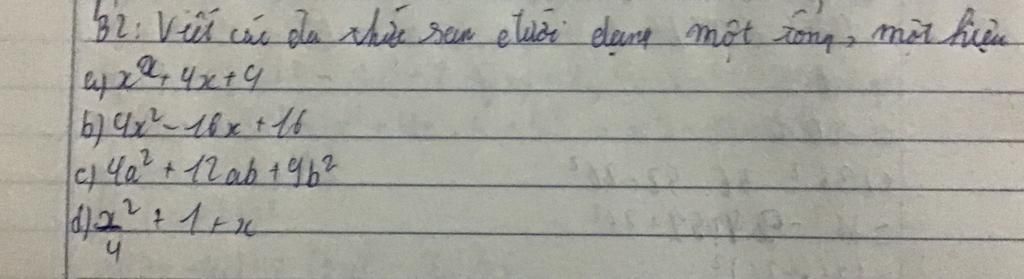 B2: Viết các đa thức sau dưới dạng một tổng, một hiệu
a) x² + 4x + 4
b) 4x² - 16x + 16
c) 4a² + 12ab + 9b²
d) x²/4 + 1 - x